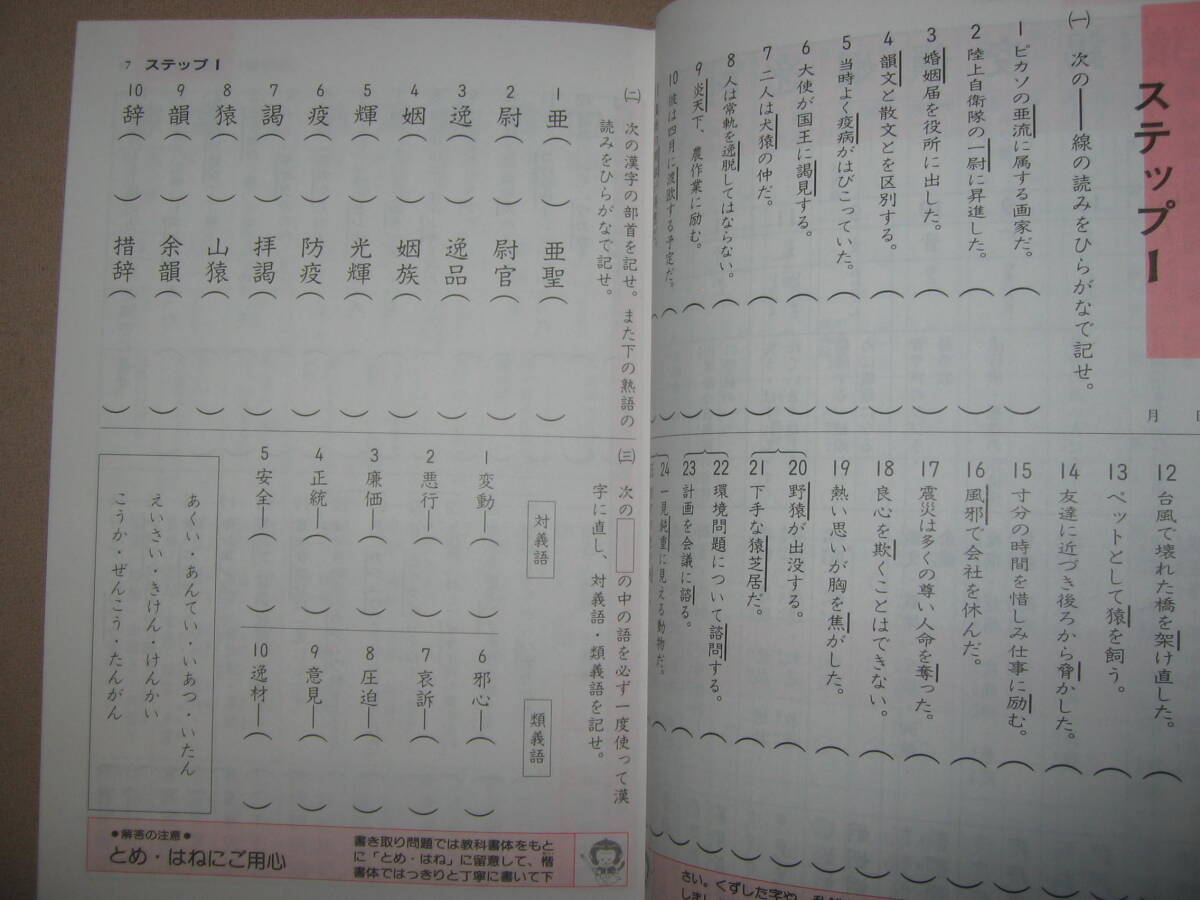 ステップ1
月
㈠ 次の――線の読みをひらがなで記せ。
1 ピカソの亜流に属する画家だ。( )
2 陸上自衛隊の一尉に昇進した。( )
3 婚姻届を役所に出した。( )
4 韻文と散文とを区別する。( )
5 当時よく疫病がはびこっていた。( )
6 大使が国王に謁見する。( )
7 二人は犬猿の仲だ。( )
8 人は常軌を逸脱してはならない。( )
9 炎天下、農作業に励む。( )
10 彼は四月に渡欧する予定だ。( )
12 台風で壊れた橋を架け直した。( )
13 ペットとして猿を飼う。( )
14 友達に近づき後ろから脅かした。( )
15 寸分の時間を惜しみ仕事に励む。( )
16 風邪で会社を休んだ。( )
17 震災は多くの尊い人命を奪った。( )
18 良心を欺くことはできない。( )
19 熱い思いが胸を焦がした。( )
20 野猿が出没する。( )
21 下手な猿芝居だ。( )
22 環境問題について諮問する。( )
23 計画を会議に諮る。( )
24 一見鈍重に見える動物だ。( )
さい。くずした字や、
7 ステップ1
㈡ 次の漢字の部首を記せ。また下の熟語の
読みをひらがなで記せ。
1 亜( ) 亜聖( )
2 尉( ) 尉官( )
3 逸( ) 逸品( )
4 姻( ) 姻族( )
5 輝( ) 光輝( )
6 疫( ) 防疫( )
7 謁( ) 拝謁( )
8 猿( ) 山猿( )
9 韻( ) 余韻( )
10 辞( ) 措辞( )
㈢ 次の の中の語を必ず一度使って漢
字に直し、対義語・類義語を記せ。
対義語
1 変動―( )
2 悪行―( )
3 廉価―( )
4 正統―( )
5 安全―( )
類義語
6 邪心―( )
7 哀訴―( )
8 圧迫―( )
9 意見―( )
10 逸材―( )
あくい・あんてい・いあつ・いたん
えいさい・きけん・けんかい
こうか・ぜんこう・たんがん
●解答の注意●
とめ・はねにご用心
書き取り問題では教科書体をもと
に「とめ・はね」に留意して、楷
書体ではっきりと丁寧に書いて下